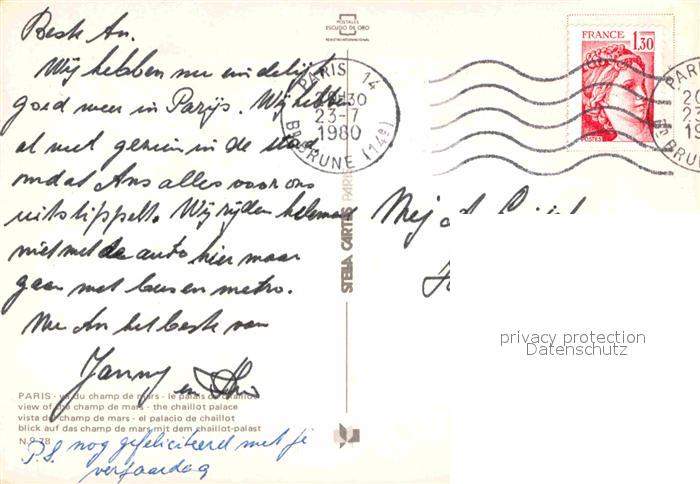 Beste An.
Wij hebben nu eindelijk
goed weer in Parijs. Wij hebben
al veel gezien in de stad,
omdat Ans alles voor ons
uitstippelt. Wij rijden helemaal
niet met de auto hier maar
gaan met bus en metro.
Nu An het beste van
Janny en
PARIS - vu du champ de mars - le palais de chaillot
view of the champ de mars - the chaillot palace
vista del champ de mars - el palacio de chaillot
blick auf das champ de mars mit dem chaillot-palast
N.P. 78
P.S. nog gefeliciteerd met je
verjaardag
POSTALES
ESCUDO DE ORO
REGISTRO INTERNACIONAL
STELLA CARTES PARIS
PARIS 14
30
23-7
1980
BRUNE (14e)
FRANCE
1,30
POSTES
PARI
20
23
19
BRUN
Mej
privacy protection
Datenschutz